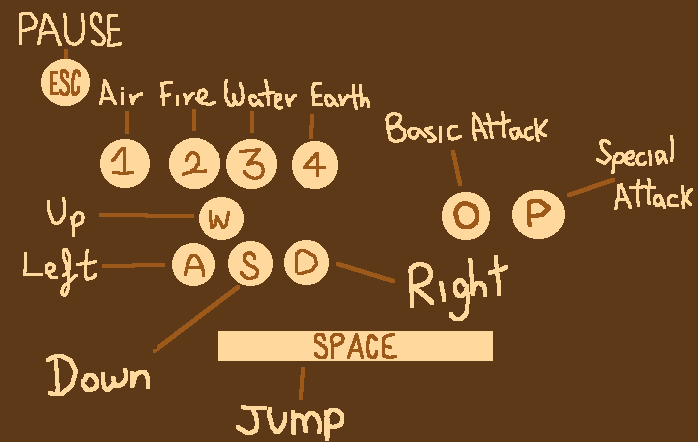 PAUSE
ESC
Air Fire Water Earth
1 2 3 4
Basic Attack
Special
Attack
O P
Up W
Left A S D Right
SPACE
Down
Jump